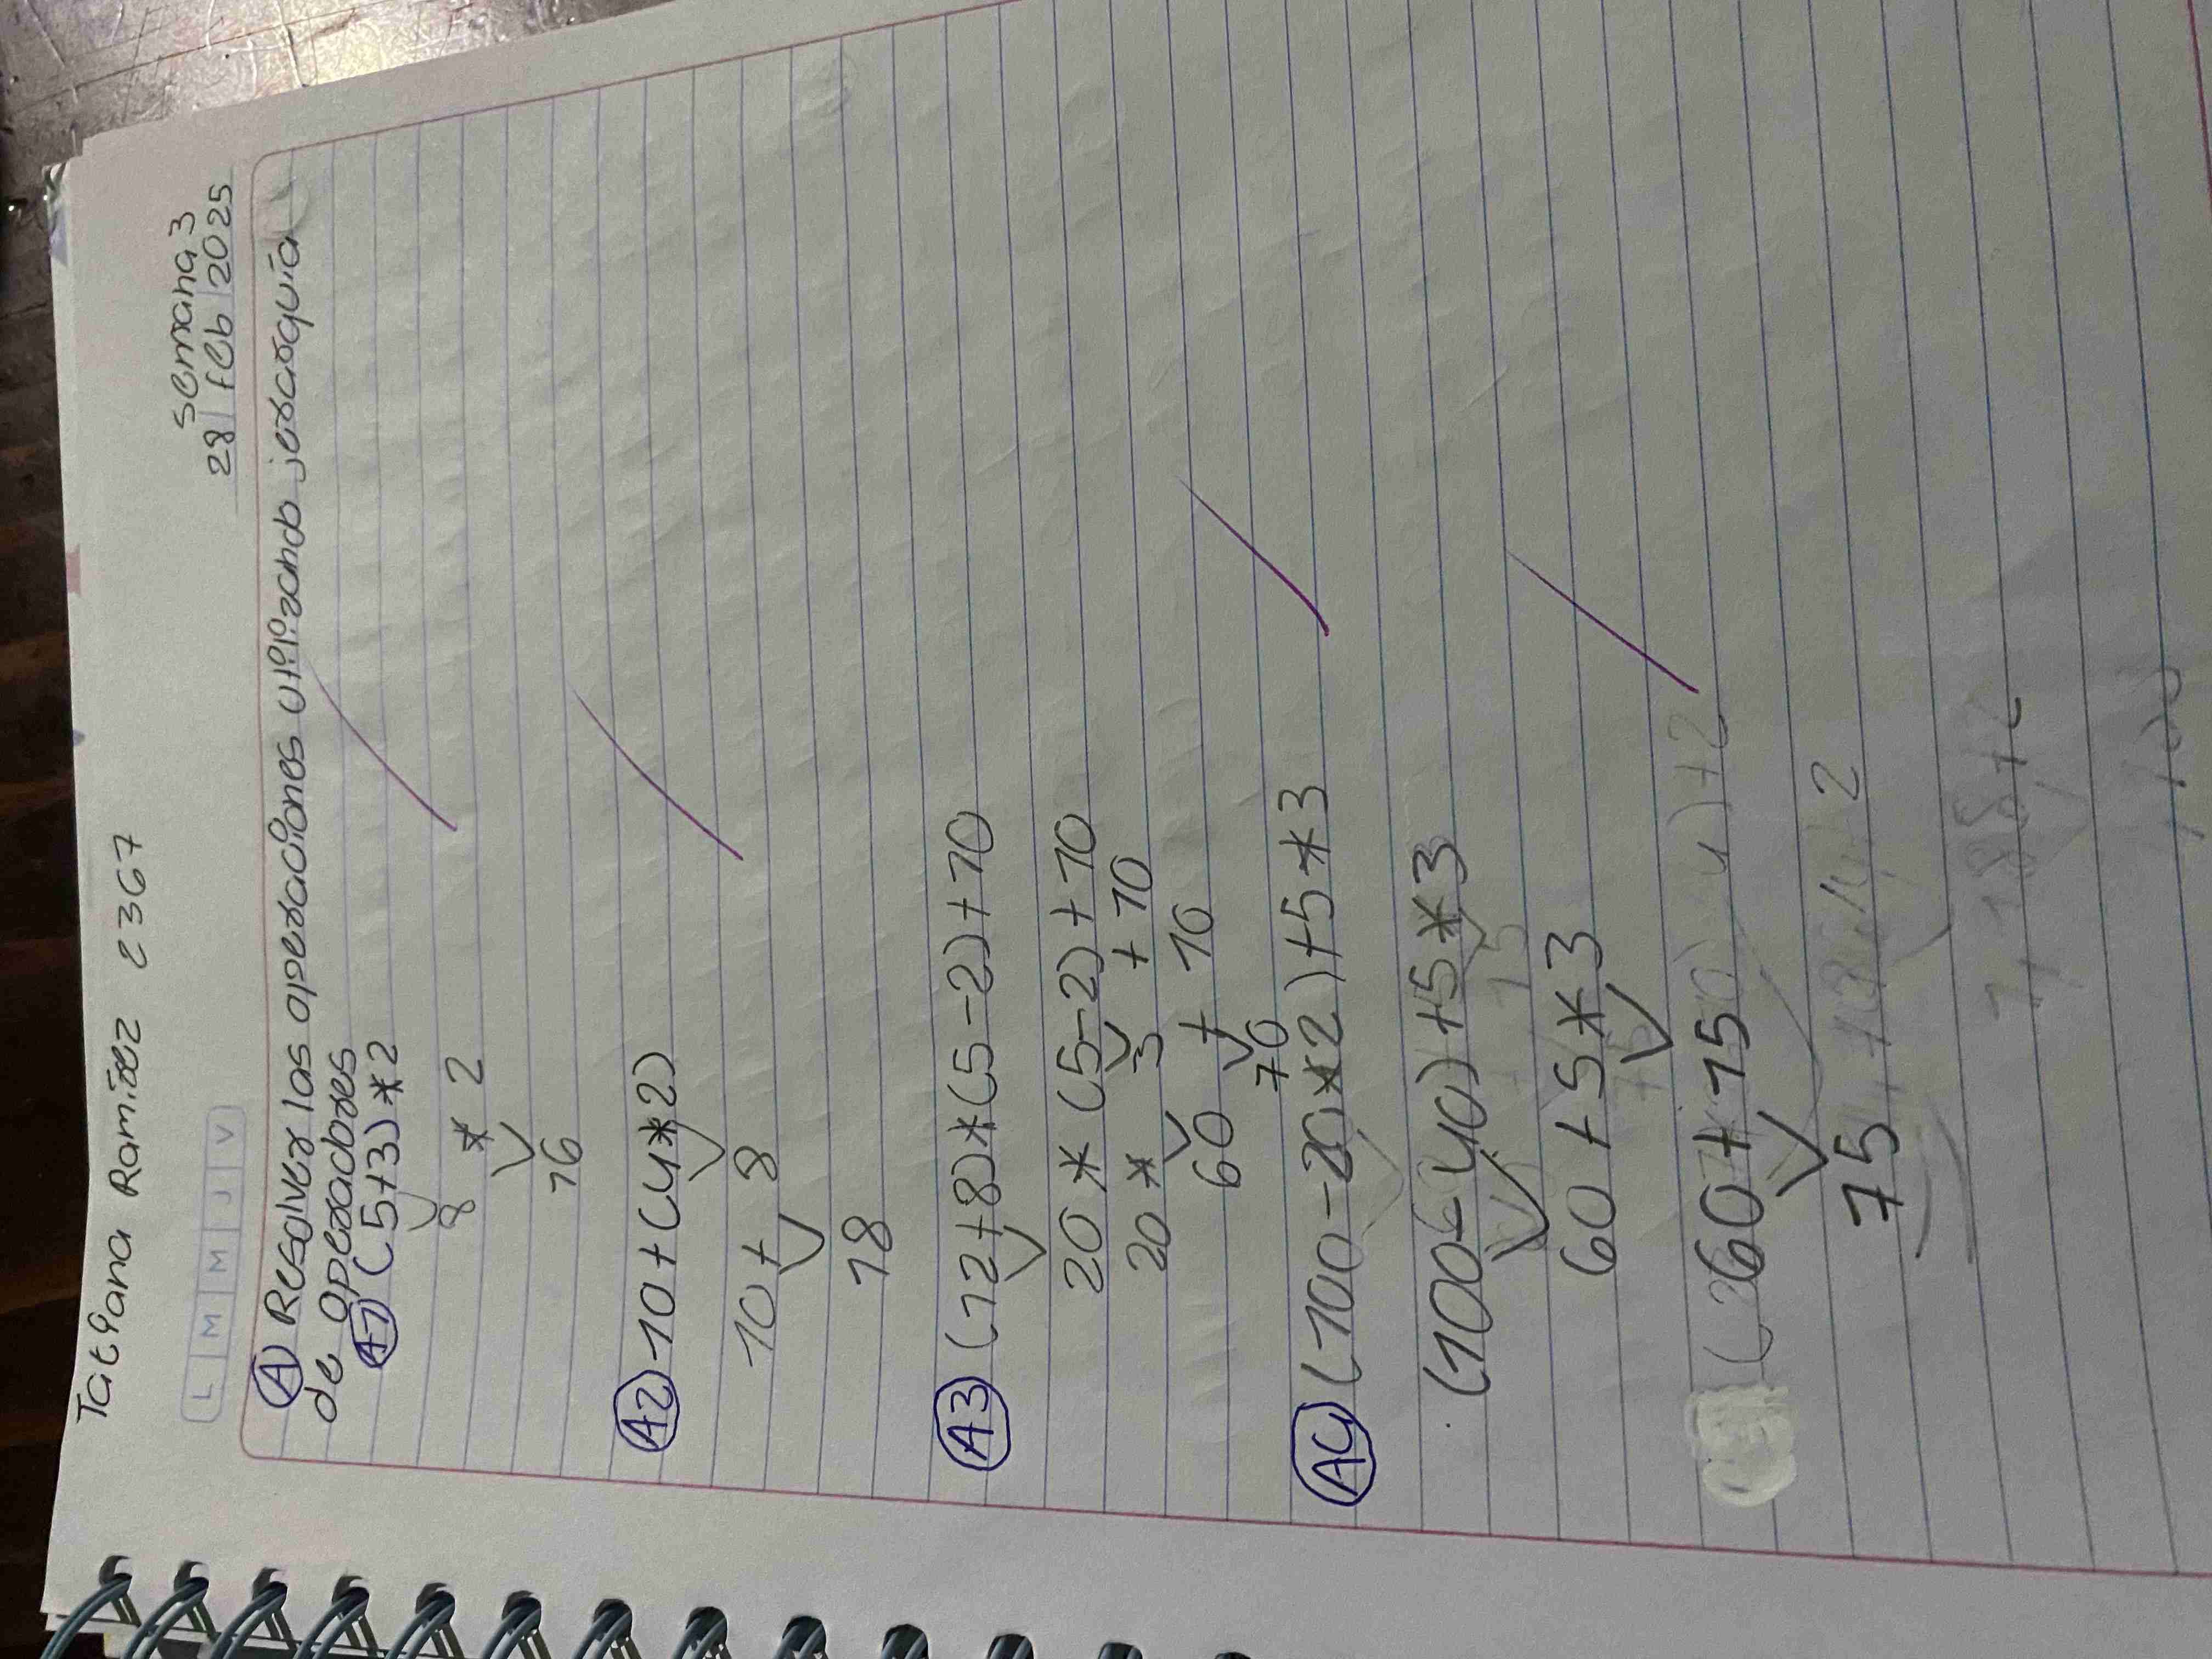 Tatiana Ramírez 2367
semana 3
L M M J V
28 feb 2025
A Resolver las operaciones utilizando jerarquía
de operadores
A1 (5+3)*2
8 * 2
16
A2 10+(4*2)
10+ 8
18
A3 (12+8)*(5-2)+10
20*(5-2)+10
20* 3 +10
60 + 10
70
A4 (100-20*2)+5*3
(100-40)+5*3
60+5*3
60+15
75